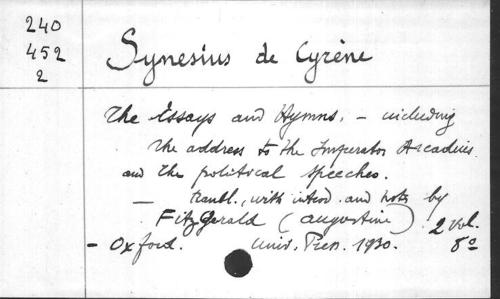 240
452
2
Synesius de Cyrène
The Essays and Hymns, – including
the address to the Imperator Arcadius
and the political speeches.
— transl., with introd. and notes by
FitzGerald (Augustine) 2 vol.
– Oxford. Univ. Press. 1930. 8º